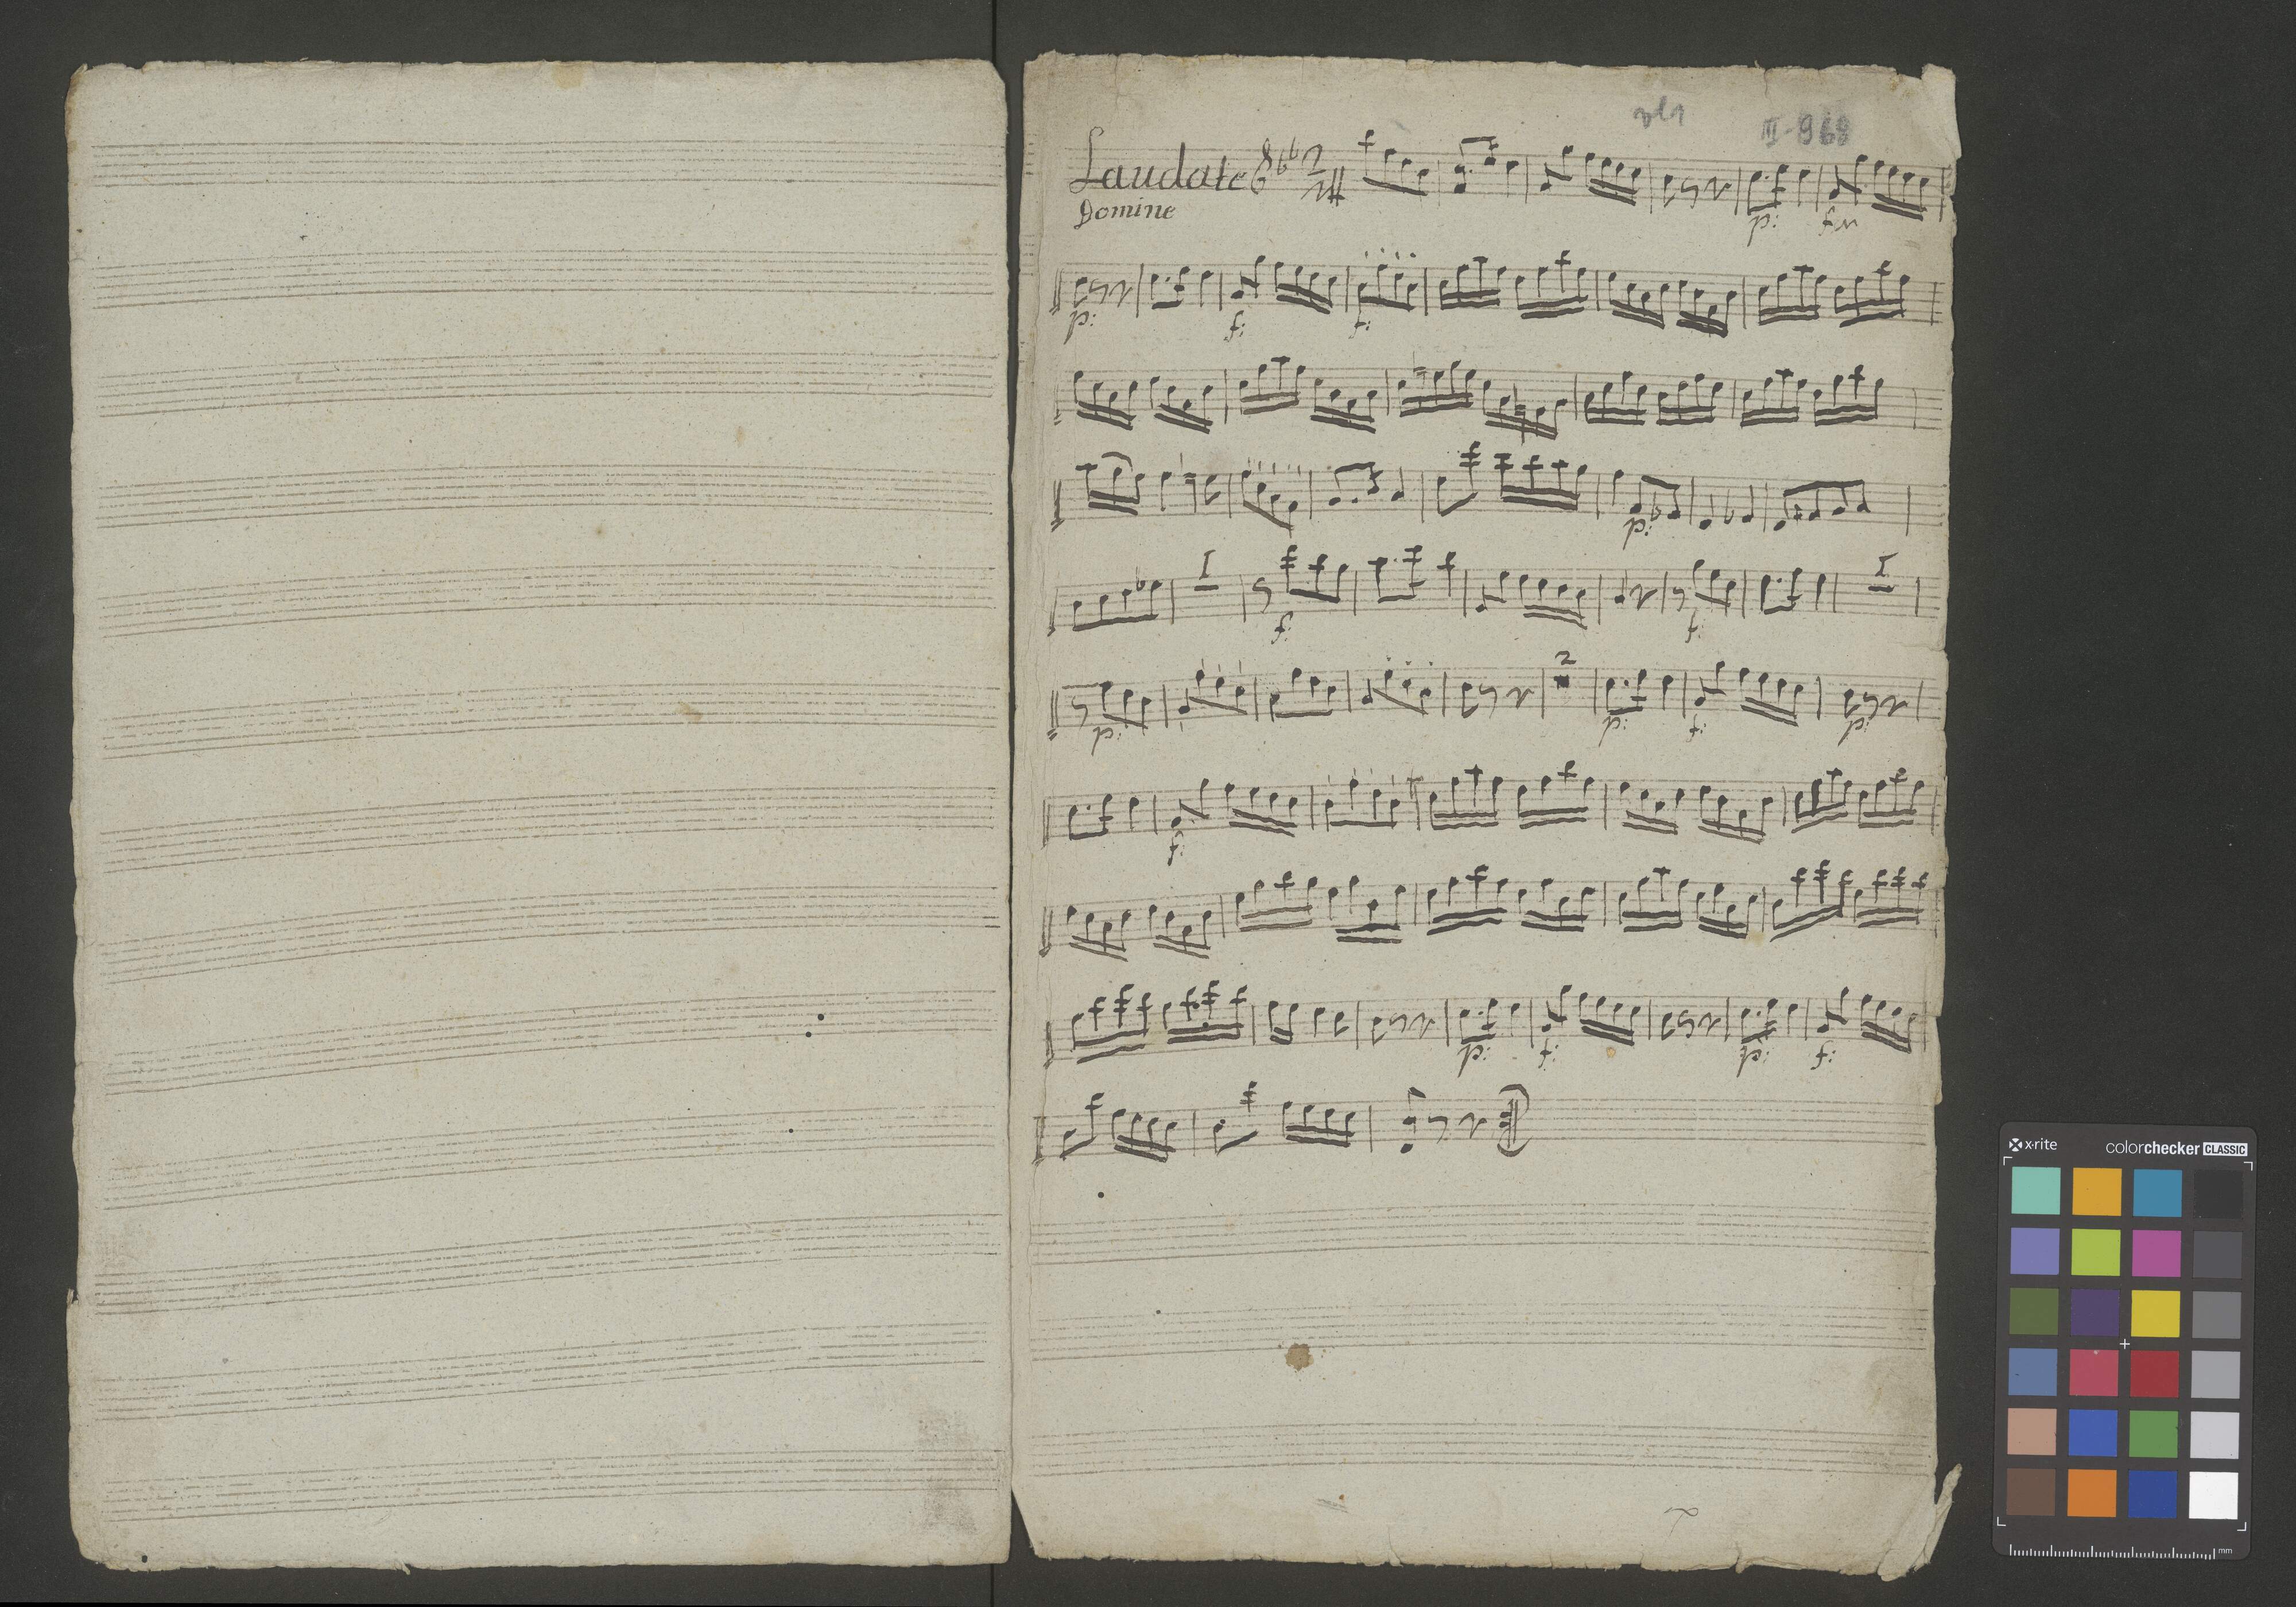 vl1
III-968
Laudate
Domine
p: f
p: f: f:
p:
I I
f: f:
2
p: p: f: p:
f:
p: f: p: f:
x-rite colorchecker CLASSIC
mm